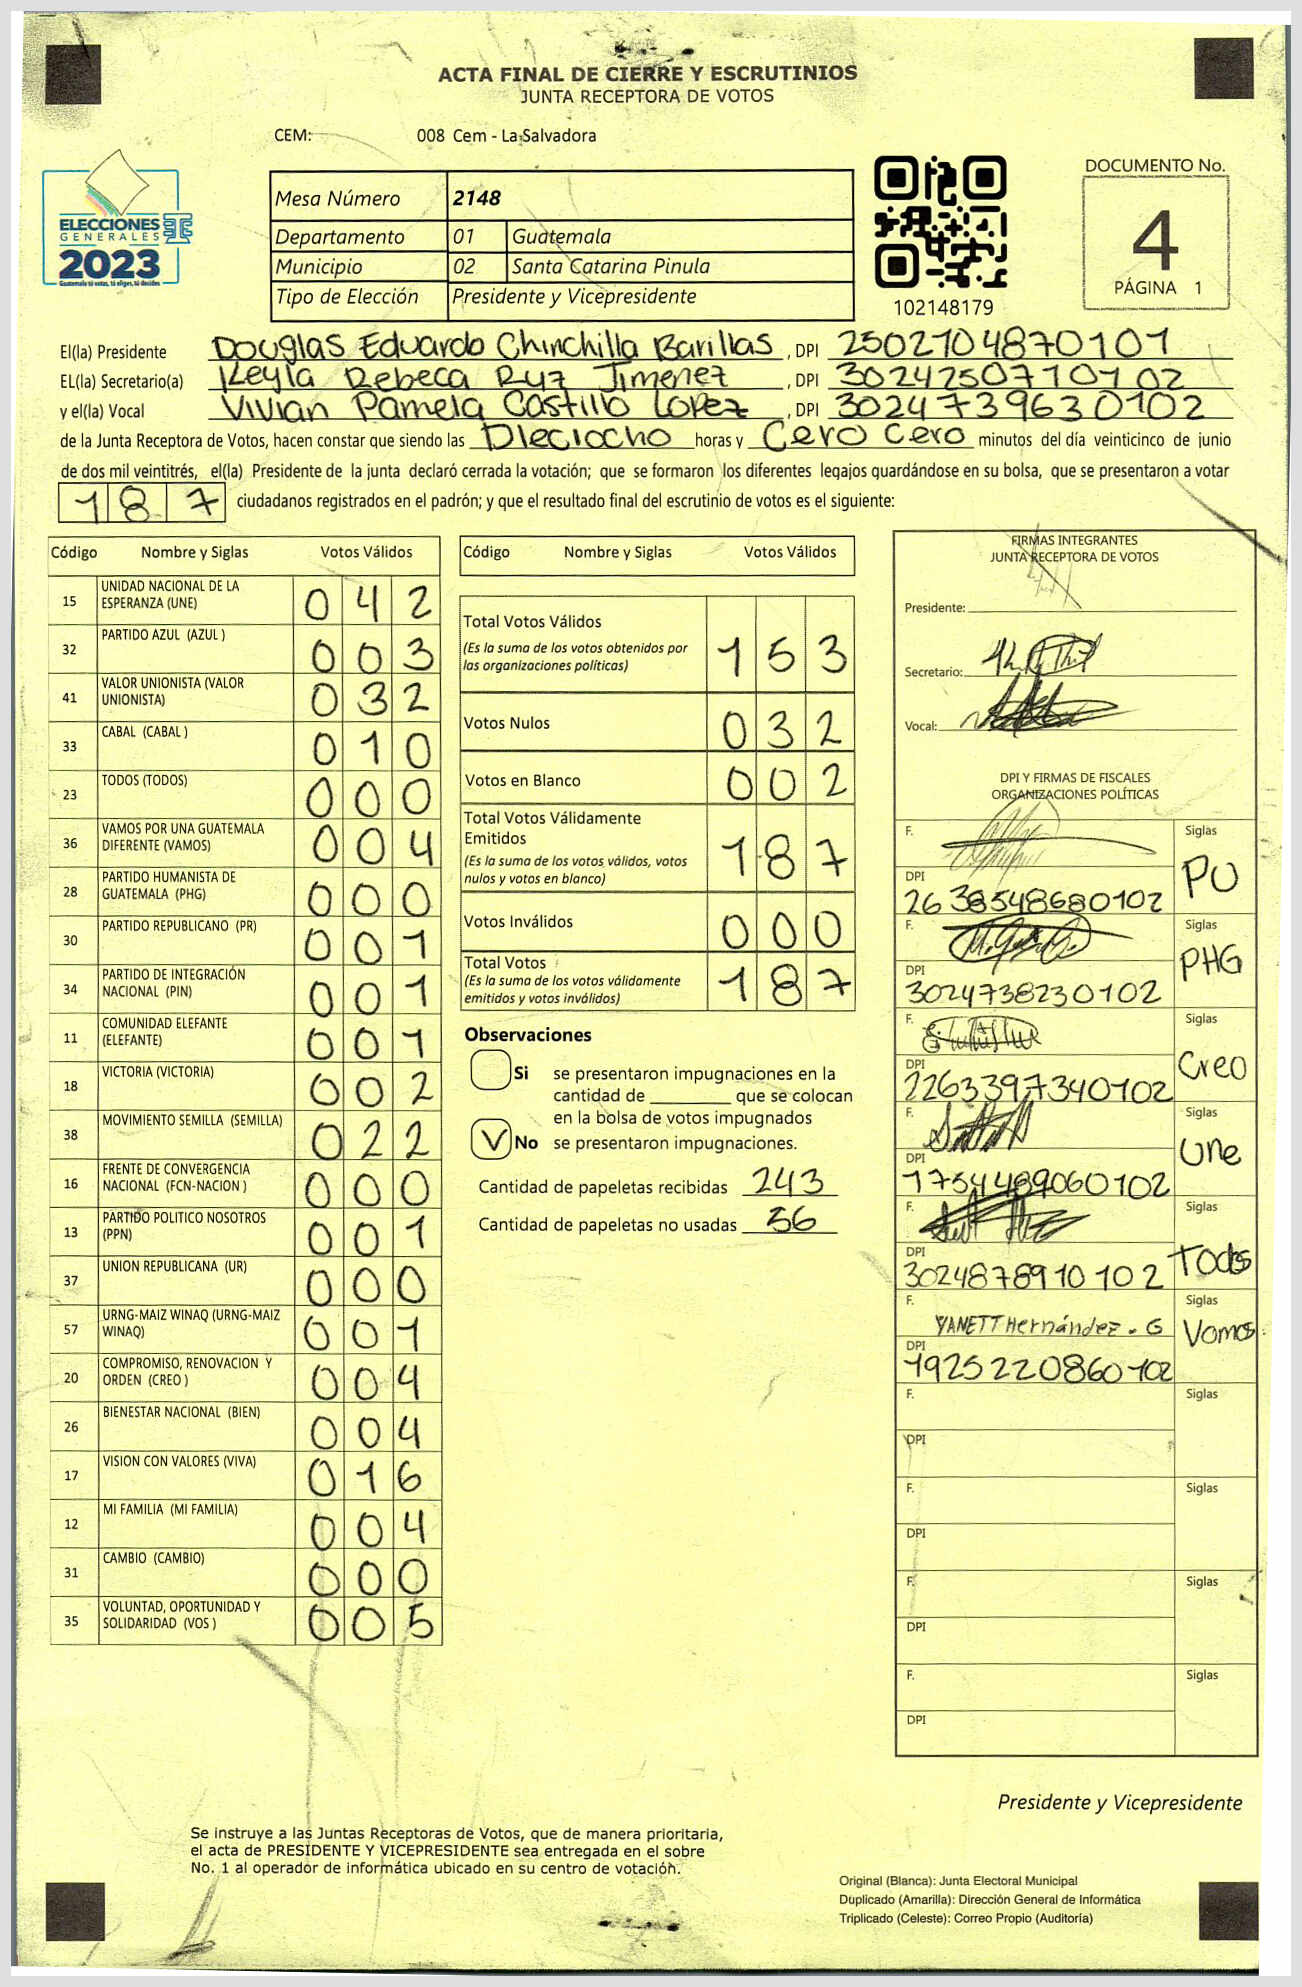 ACTA FINAL DE CIERRE Y ESCRUTINIOS
JUNTA RECEPTORA DE VOTOS
CEM: 008 Cem - La Salvadora
ELECCIONES
GENERALES
2023
Guatemala tú votas, tú eliges, tú decides
Mesa Número 2148
Departamento 01 Guatemala
Municipio 02 Santa Catarina Pinula
Tipo de Elección Presidente y Vicepresidente
102148179
DOCUMENTO No.
4
PÁGINA 1
El(la) Presidente Douglas Eduardo Chinchilla Barillas, DPI 2502104870101
EL(la) Secretario(a) Keyla Rebeca Ruz Jimenez, DPI 3024250710102
y el(la) Vocal Vivian Pamela Castillo Lopez, DPI 3024739630102
de la Junta Receptora de Votos, hacen constar que siendo las Dieciocho horas y Cero Cero minutos del día veinticinco de junio
de dos mil veintitrés, el(la) Presidente de la junta declaró cerrada la votación; que se formaron los diferentes legajos guardándose en su bolsa, que se presentaron a votar
187 ciudadanos registrados en el padrón; y que el resultado final del escrutinio de votos es el siguiente:
Código Nombre y Siglas Votos Válidos
15 UNIDAD NACIONAL DE LA ESPERANZA (UNE) 042
32 PARTIDO AZUL (AZUL ) 003
41 VALOR UNIONISTA (VALOR UNIONISTA) 032
33 CABAL (CABAL ) 010
23 TODOS (TODOS) 000
36 VAMOS POR UNA GUATEMALA DIFERENTE (VAMOS) 004
28 PARTIDO HUMANISTA DE GUATEMALA (PHG) 000
30 PARTIDO REPUBLICANO (PR) 001
34 PARTIDO DE INTEGRACIÓN NACIONAL (PIN) 001
11 COMUNIDAD ELEFANTE (ELEFANTE) 001
18 VICTORIA (VICTORIA) 002
38 MOVIMIENTO SEMILLA (SEMILLA) 022
16 FRENTE DE CONVERGENCIA NACIONAL (FCN-NACION ) 000
13 PARTIDO POLITICO NOSOTROS (PPN) 001
37 UNION REPUBLICANA (UR) 000
57 URNG-MAIZ WINAQ (URNG-MAIZ WINAQ) 001
20 COMPROMISO, RENOVACION Y ORDEN (CREO ) 004
26 BIENESTAR NACIONAL (BIEN) 004
17 VISION CON VALORES (VIVA) 016
12 MI FAMILIA (MI FAMILIA) 004
31 CAMBIO (CAMBIO) 000
35 VOLUNTAD, OPORTUNIDAD Y SOLIDARIDAD (VOS ) 005
Código Nombre y Siglas Votos Válidos
Total Votos Válidos 153
(Es la suma de los votos obtenidos por
las organizaciones políticas)
Votos Nulos 032
Votos en Blanco 002
Total Votos Válidamente
Emitidos 187
(Es la suma de los votos válidos, votos
nulos y votos en blanco)
Votos Inválidos 000
Total Votos 187
(Es la suma de los votos válidamente
emitidos y votos inválidos)
Observaciones
Si se presentaron impugnaciones en la
cantidad de ________ que se colocan
en la bolsa de votos impugnados
No se presentaron impugnaciones.
Cantidad de papeletas recibidas 243
Cantidad de papeletas no usadas 56
FIRMAS INTEGRANTES
JUNTA RECEPTORA DE VOTOS
Presidente:
Secretario:
Vocal:
DPI Y FIRMAS DE FISCALES
ORGANIZACIONES POLÍTICAS
F. Siglas
DPI PU
2638548680102
F. Siglas
DPI PHG
3024738230102
F. Siglas
DPI Creo
2263397340102
F. Siglas
DPI Une
1754489060102
F. Siglas
DPI Todos
3024878910102
F. Siglas
YANETT Hernández . G Vamos
DPI
1925220860102
F. Siglas
DPI
F. Siglas
DPI
F. Siglas
DPI
F. Siglas
DPI
Presidente y Vicepresidente
Se instruye a las Juntas Receptoras de Votos, que de manera prioritaria,
el acta de PRESIDENTE Y VICEPRESIDENTE sea entregada en el sobre
No. 1 al operador de informática ubicado en su centro de votación.
Original (Blanca): Junta Electoral Municipal
Duplicado (Amarilla): Dirección General de Informática
Triplicado (Celeste): Correo Propio (Auditoría)